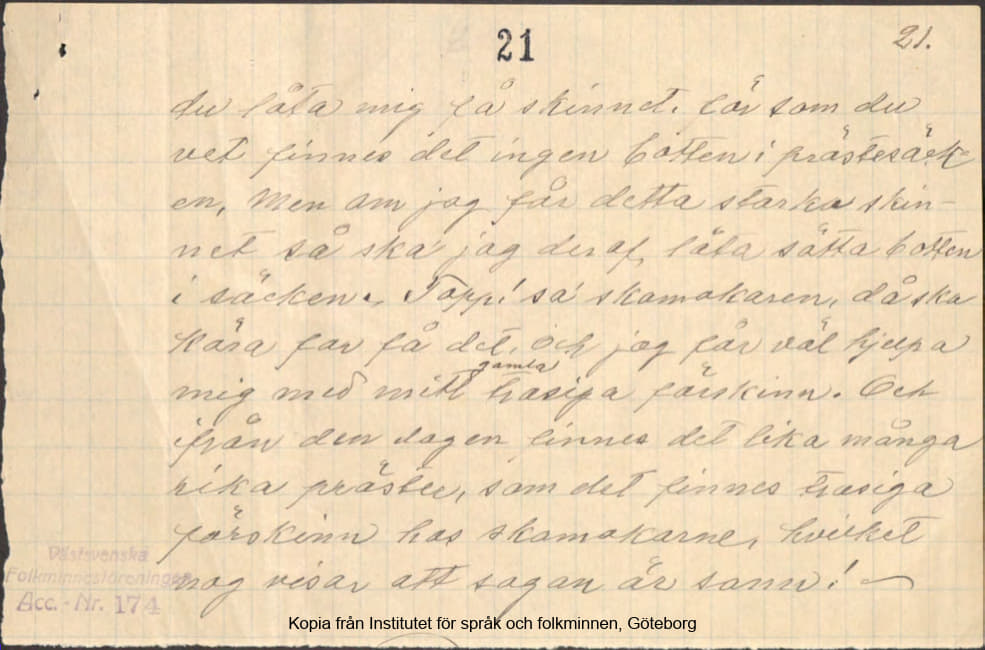 21 21.
du låta mig få skinnet, för som du
vet finnes det ingen botten i prästesäck-
en, Men om jag får detta starka skin-
net så ska jag deraf låta sätta botten
i säcken. Topp! sa skomakaren, då ska
kära far få det, och jag får väl hjelpa
mig med mitt gamla trasiga förskinn. Och
ifrån den dagen finnes det lika många
rika präster, som det finnes trasiga
förskinn hos skomakarne, hvilket
nog visar att sagan är sann!
Västsvenska
Folkminnesföreningen
Acc.-Nr. 174
Kopia från Institutet för språk och folkminnen, Göteborg